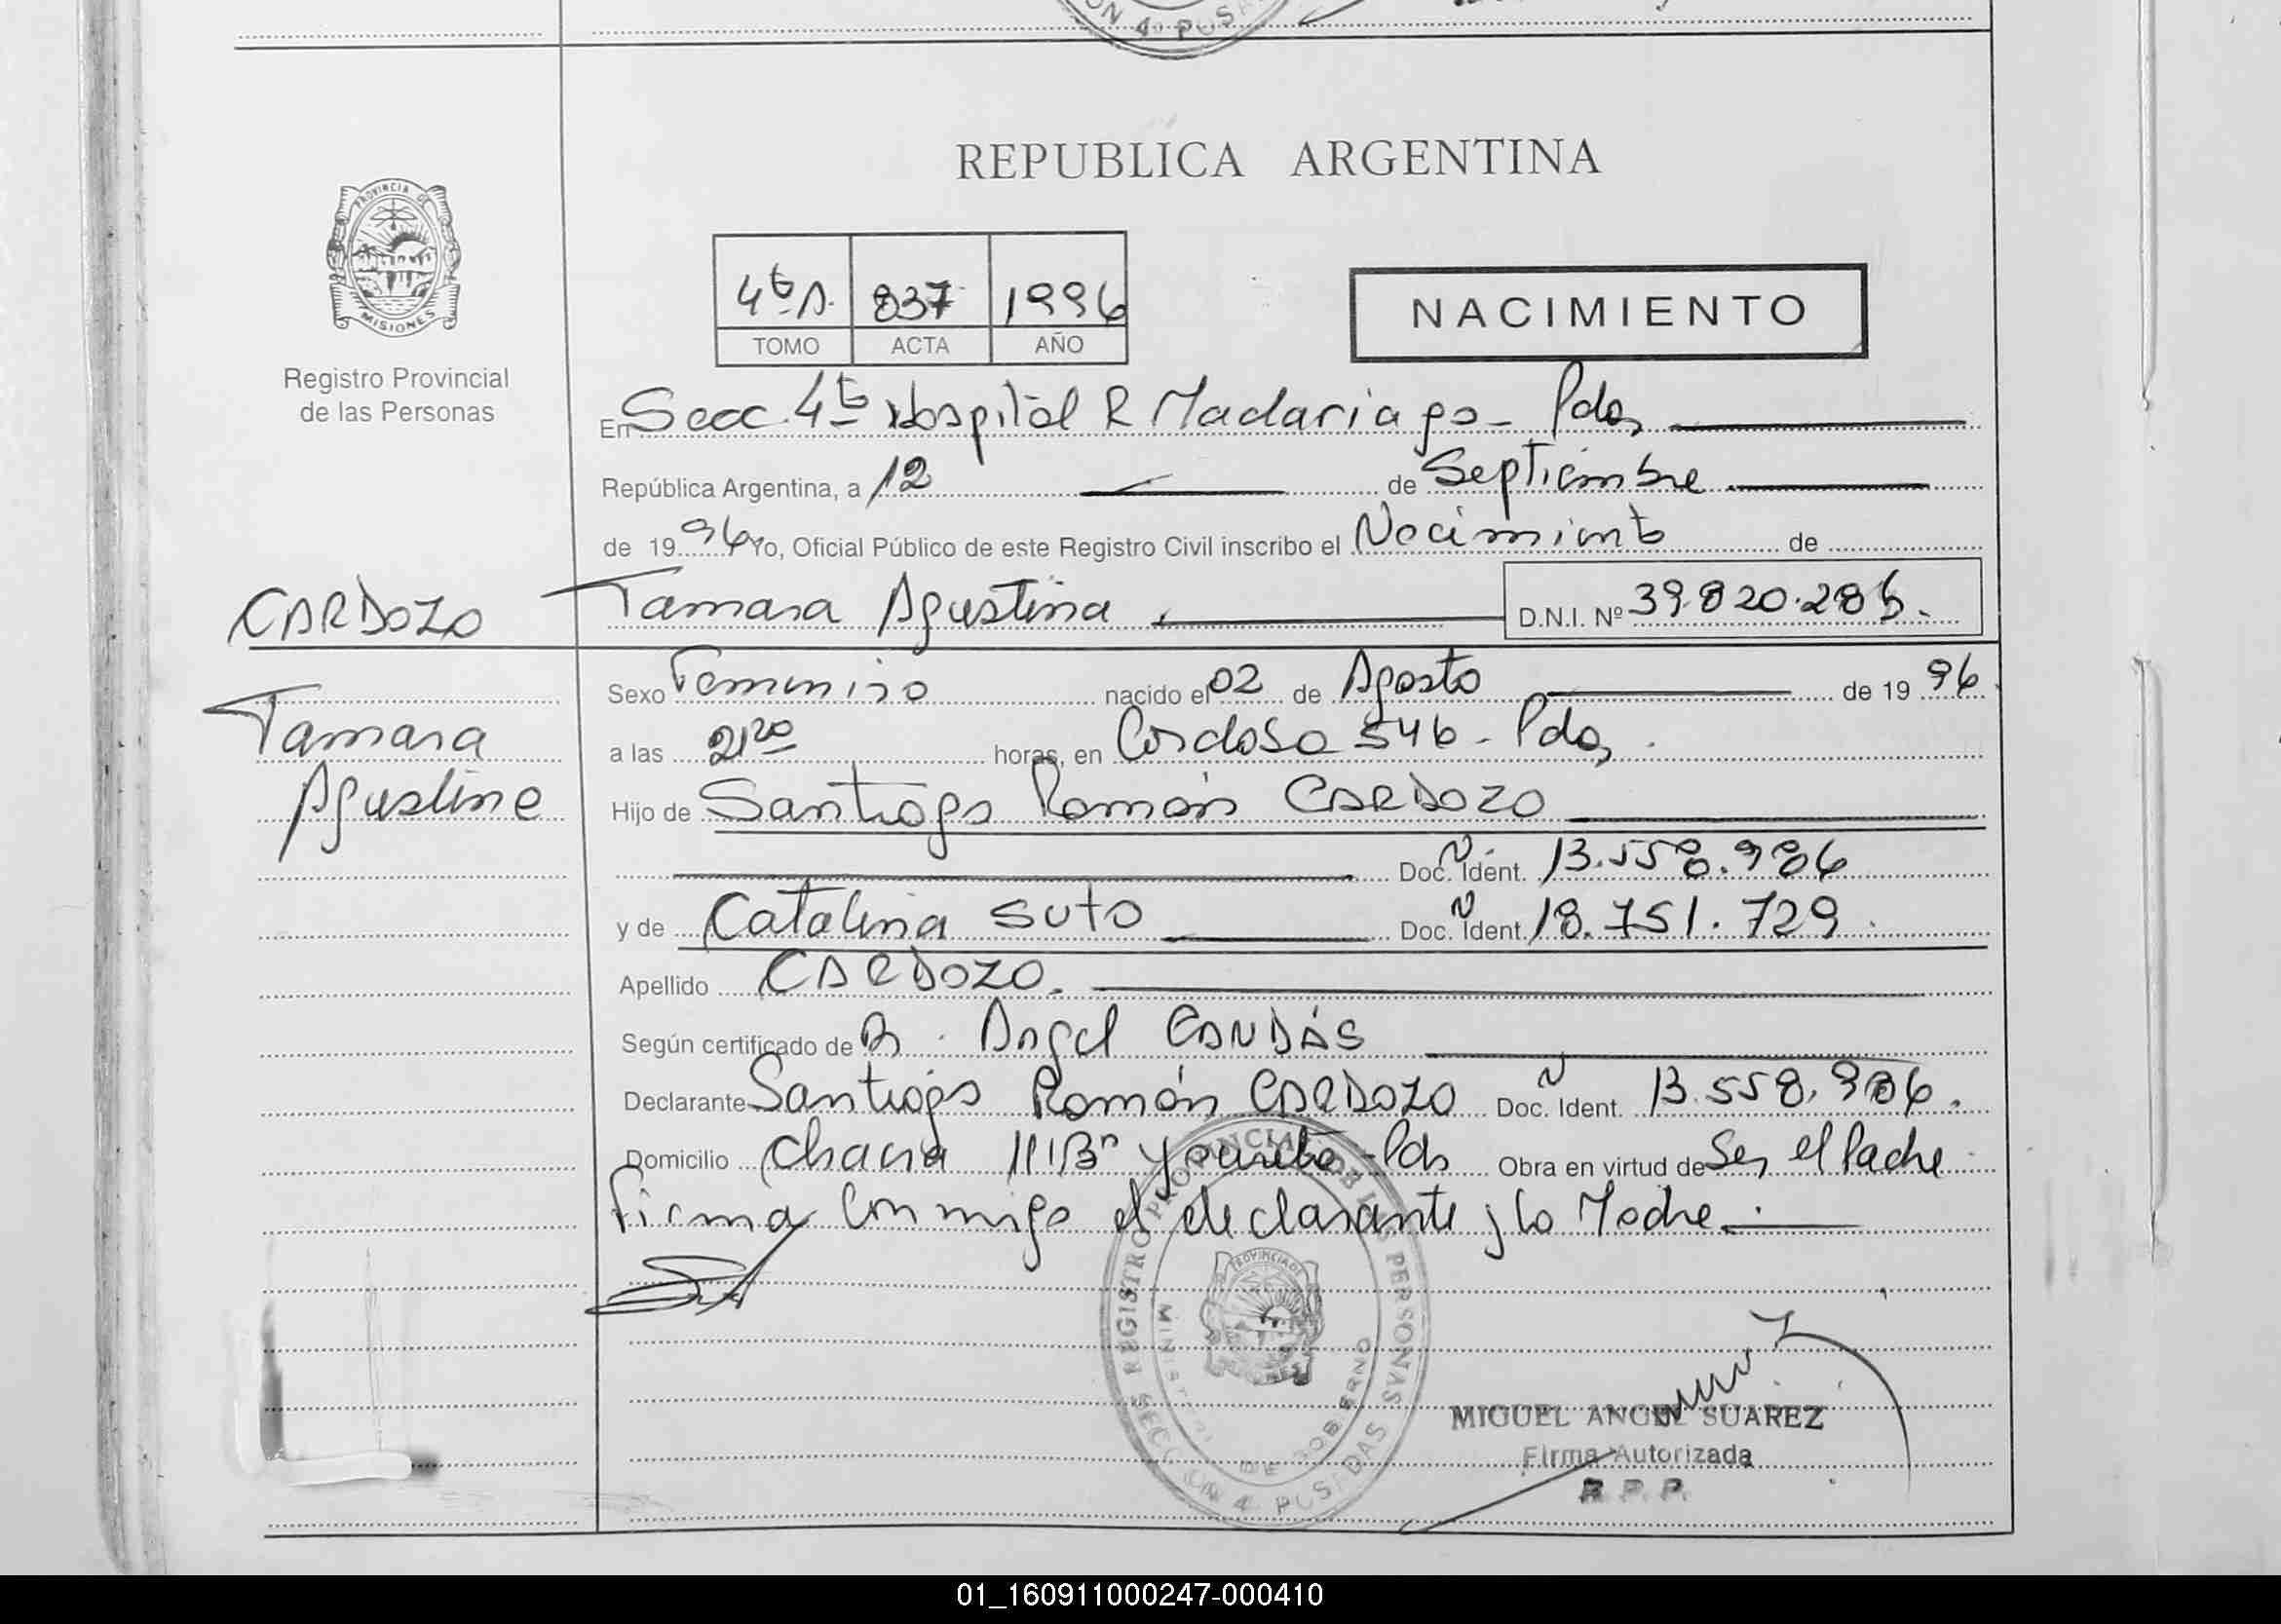 REPUBLICA ARGENTINA
PROVINCIA DE
MISIONES
Registro Provincial
de las Personas
4ta A. 837 1996
TOMO ACTA AÑO
NACIMIENTO
En Secc. 4ta Hospital R Madariaga - Pdas
República Argentina, a 12 de Septiembre
de 1996 Yo, Oficial Público de este Registro Civil inscribo el Nacimiento de
CARDOZO
Tamara Agustina
D.N.I. Nº 39.820.286.
Tamara
Agustina
Sexo Femenino nacido el 02 de Agosto de 19 96
a las 21:20 horas, en Cordoba 546 - Pdas.
Hijo de Santiago Román CARDOZO
Doc. Ident. 13.558.986
y de Catalina SUTO Doc. Ident. 18.751.729.
Apellido CARDOZO.
Según certificado de Dr. Angel CANDÁS
Declarante Santiago Román CARDOZO Doc. Ident. 13.558.986.
Domicilio Chacra Bº Yacarebe - Pdas Obra en virtud de Ser el Padre
Firma conmigo el declarante y la Madre.
REGISTRO PROVINCIAL DE LAS PERSONAS
PROVINCIA DE
MISIONES
MINISTERIO DE GOBIERNO
SECCION 4ª POSADAS
MIGUEL ANGEL SUAREZ
Firma Autorizada
R. P. P.
01_160911000247-000410